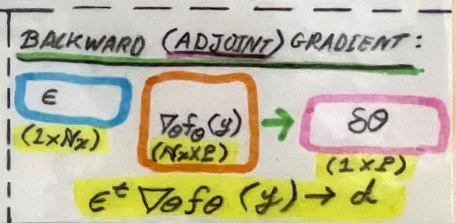 BACKWARD (ADJOINT) GRADIENT:
ϵ ∇θfθ(y) → δθ
(1×Nx) (Nx×P) (1×P)
ϵᵗ ∇θfθ (y) → d